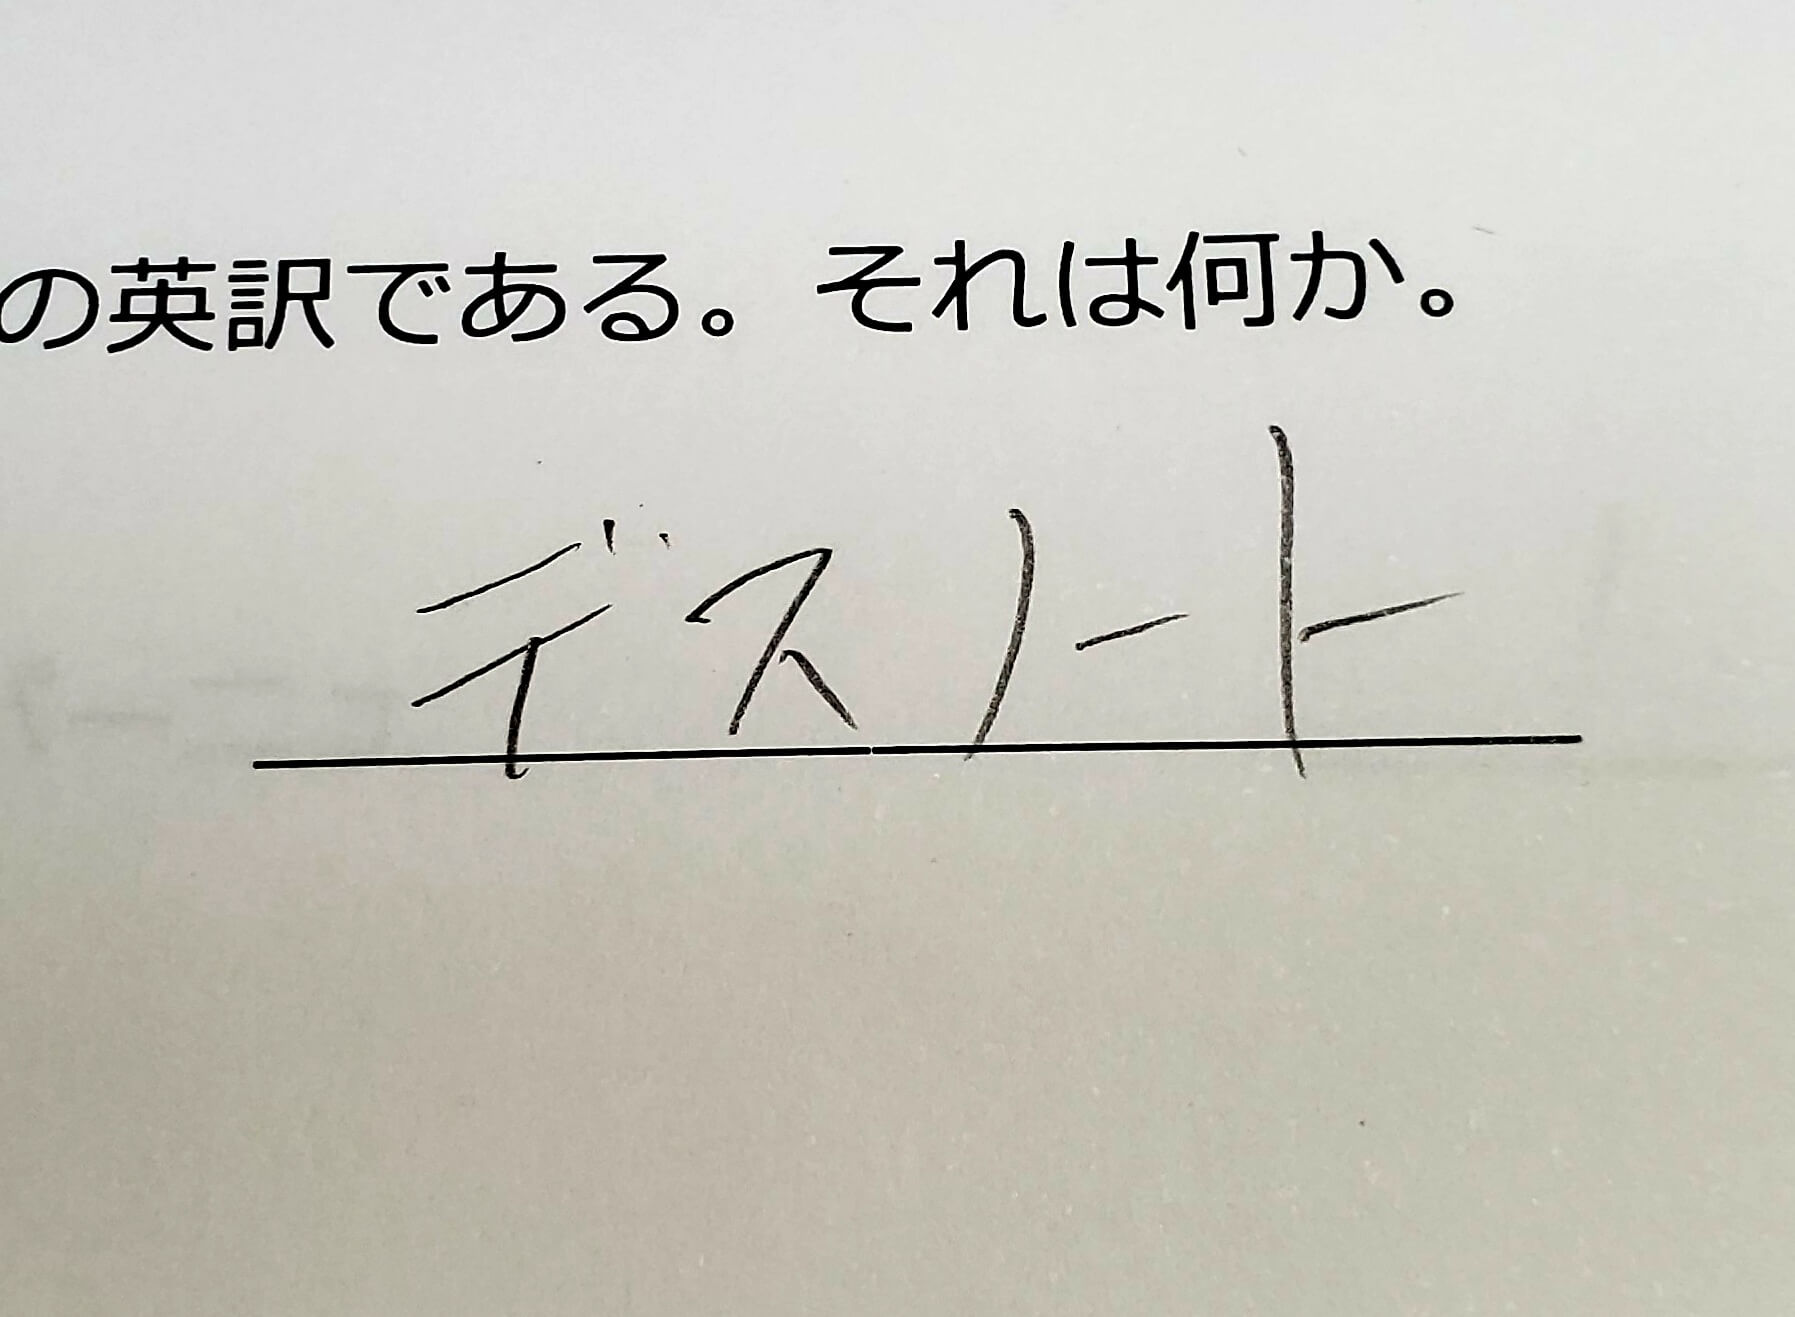 の英訳である。それは何か。
デスノート